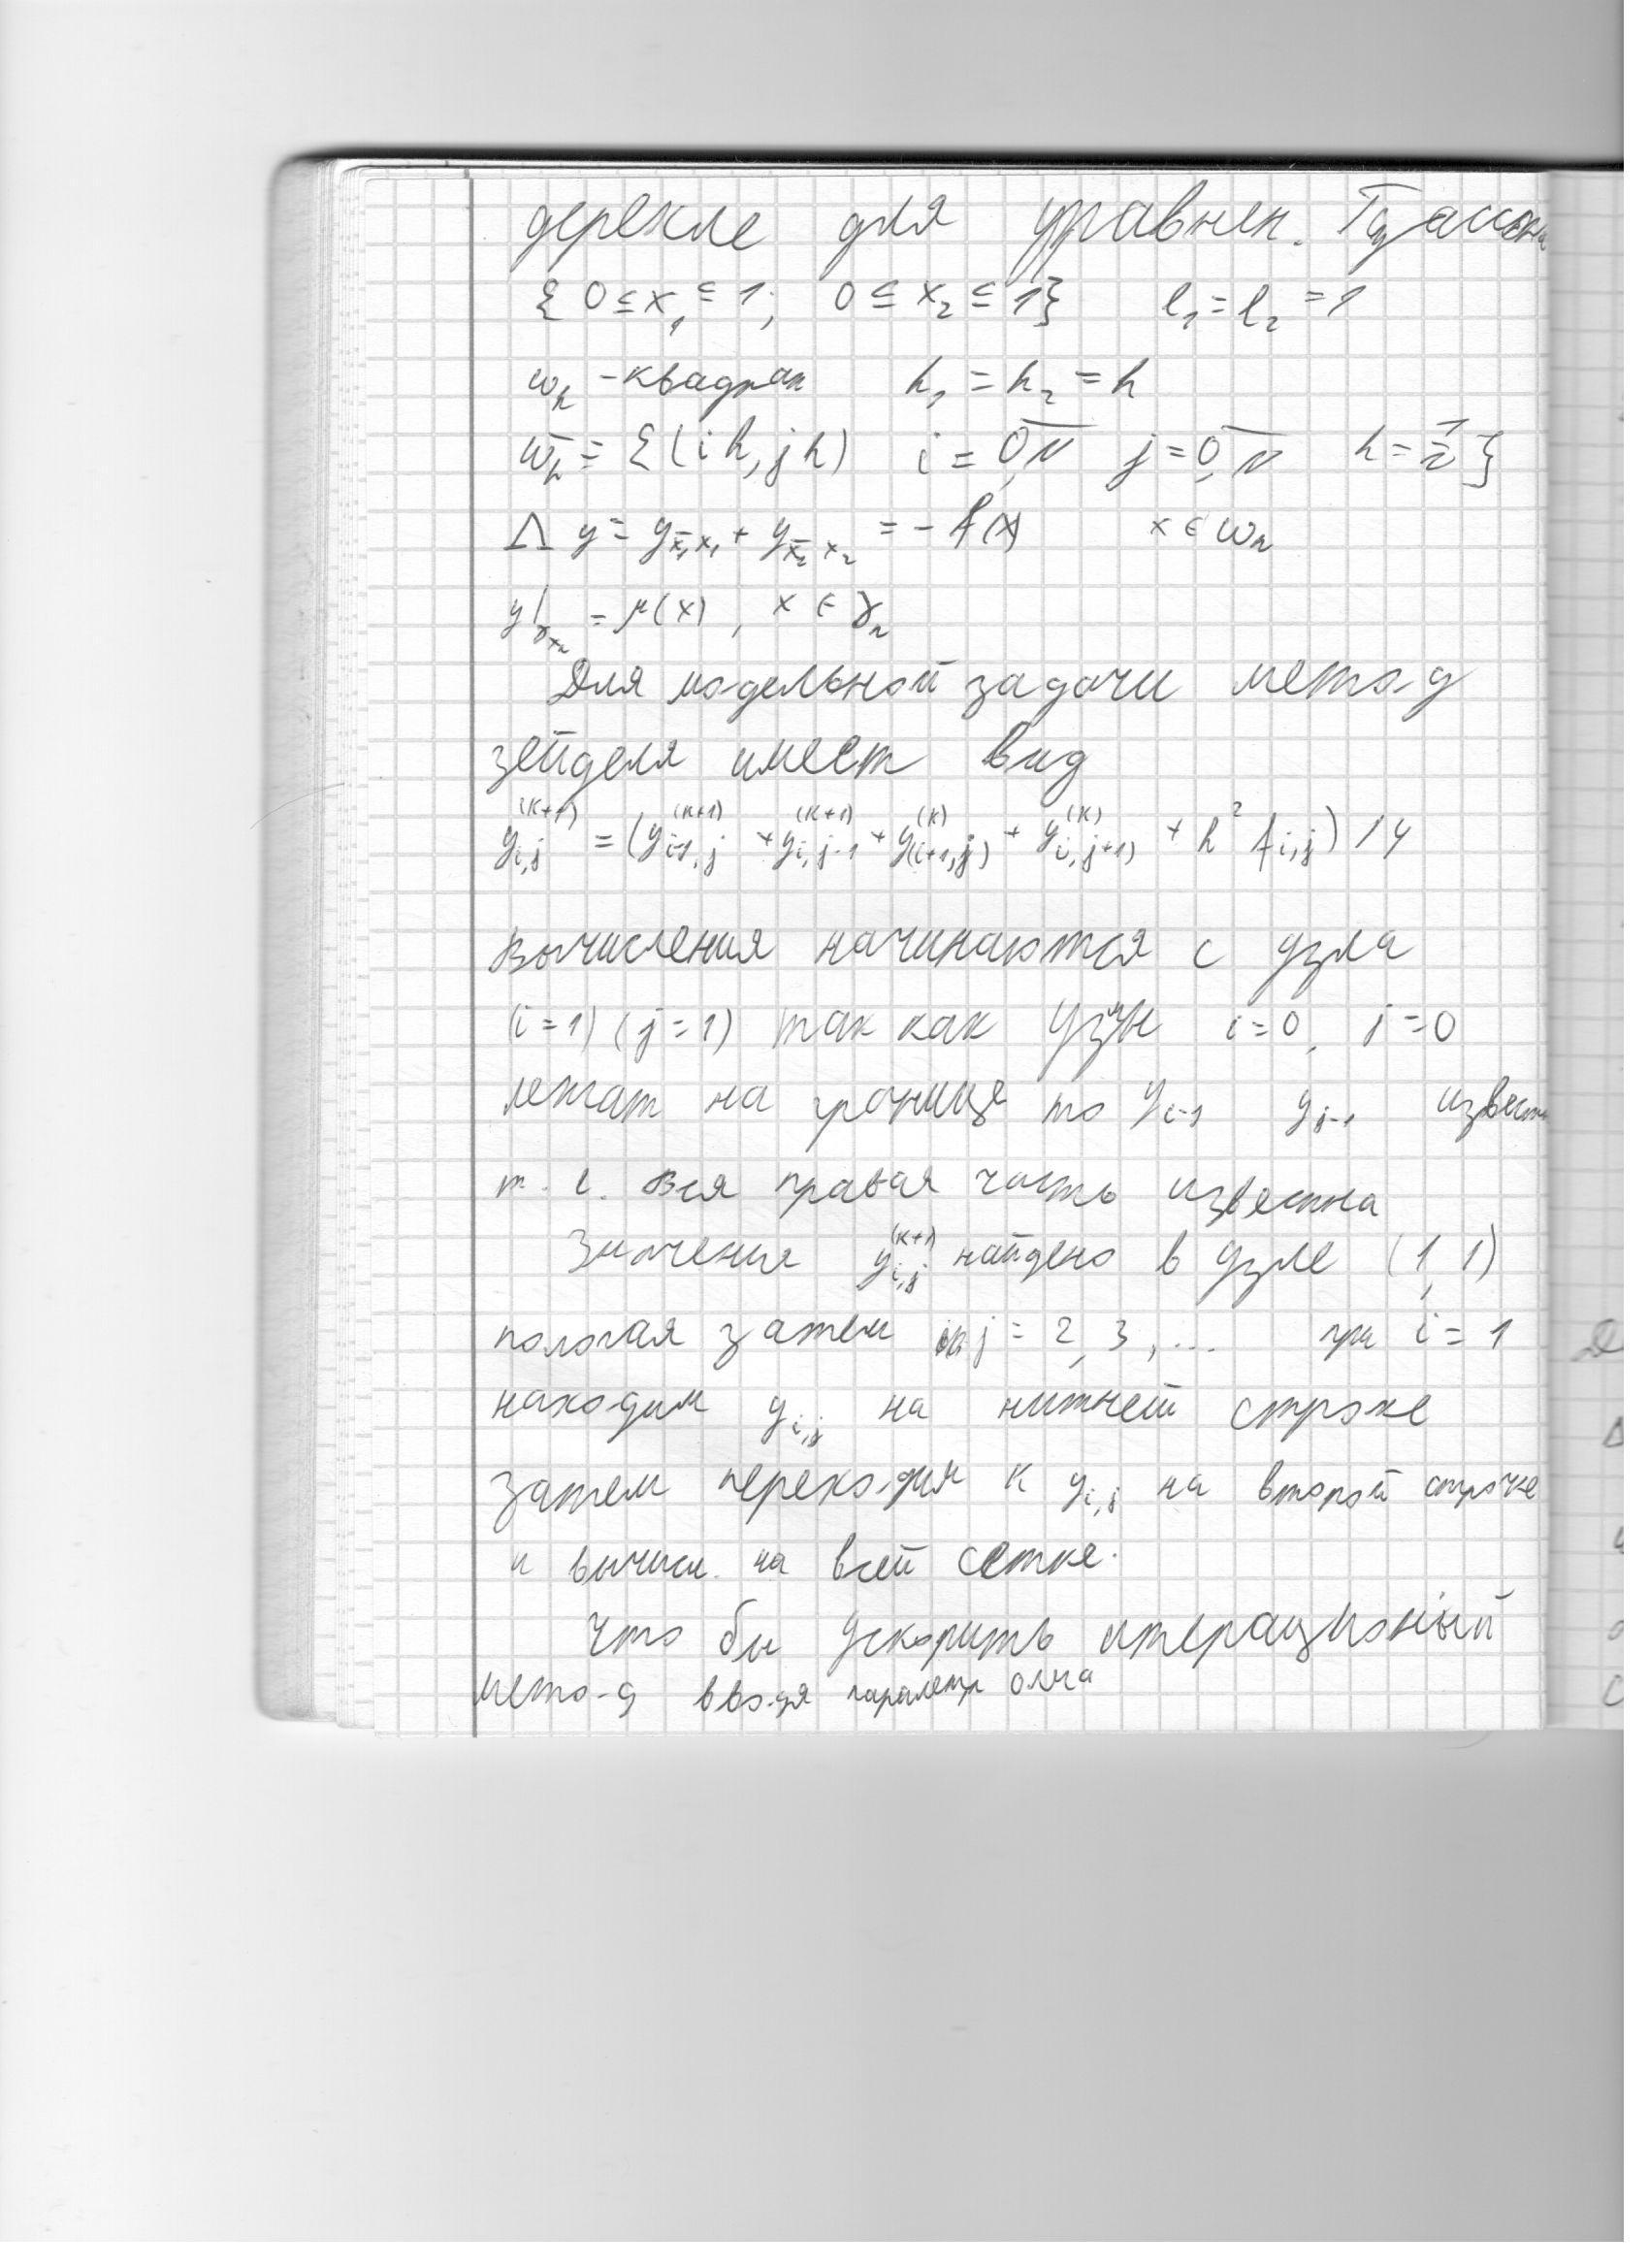 дерехле для уравнен. Пуассона
{ 0 ≤ x₁ ≤ 1; 0 ≤ x₂ ≤ 1} l₁ = l₂ = 1
ωₕ - квадрат h₁ = h₂ = h
ω̄ₕ = {(ih, jh) i = 0,N j = 0,N h = 1/N }
Λ y = y_{x̄₁x₁} + y_{x̄₂x₂} = - f(x) x ∈ ωₕ
y|_γ = μ(x), x ∈ γₕ
Для модельной задачи метод
зейделя имеет вид
y_{i,j}^{(к+1)} = (y_{i-1,j}^{(к+1)} + y_{i,j-1}^{(к+1)} + y_{(i+1,j)}^{(к)} + y_{i,j+1)}^{(к)} + h² f_{i,j}) / 4
вычисления начинаются с узла
(i = 1) (j = 1) так как узлы i = 0, j = 0
лежат на границе то y_{i-1} y_{j-1} извест
т. е. вся правая часть известна
Значения y_{i,j}^{(к+1)} найдено в узле (1, 1)
полагая затем j = 2, 3, ... при i = 1
находим y_{i,j} на нижней строке
затем переходим к y_{i,j} на второй строчке
и вычисл. на всей сетке.
Что бы ускорить итерационый
метод вводя параметр омега